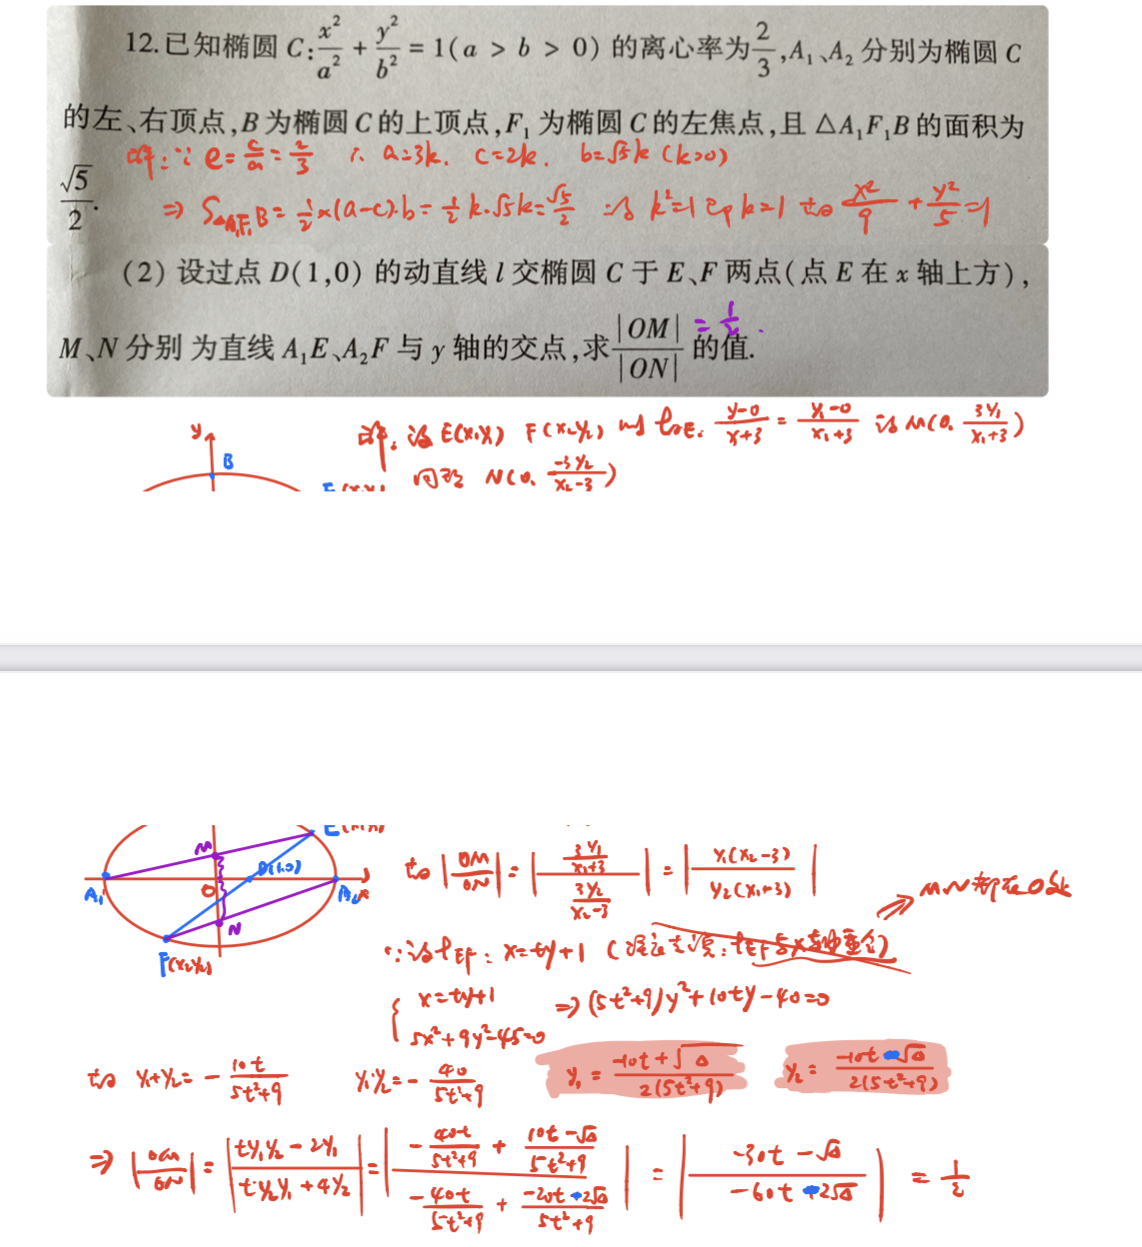 12.已知椭圆 C:x²/a² + y²/b² = 1(a > b > 0) 的离心率为2/3,A₁、A₂ 分别为椭圆 C
的左、右顶点,B 为椭圆 C 的上顶点,F₁ 为椭圆 C 的左焦点,且 △A₁F₁B 的面积为
解:∵ e=c/a=2/3 ∴ a=3k. c=2k. b=√5k (k>0)
√5/2.
⇒ S△A₁F₁B=1/2×(a-c)·b=1/2 k·√5k=√5/2 得 k²=1 即 k=1 故 x²/9+y²/5=1
(2) 设过点 D(1,0) 的动直线 l 交椭圆 C 于 E、F 两点(点 E 在 x 轴上方),
M、N 分别 为直线 A₁E、A₂F 与 y 轴的交点,求|OM|/|ON| 的值.
=1/2.
解:设 E(x₁y₁) F(x₂y₂) 则 : y-0/x+3 = y₁-0/x₁+3 得 M(0. 3y₁/x₁+3)
同理 N(0. -3y₂/x₂-3)
y
B
M
D(1,0)
A₁
O
A₂
x
N
F(x₂y₂)
故 |OM/ON|=|3y₁/x₁+3 / 3y₂/x₂-3|=|y₁(x₂-3)/y₂(x₁+3)|
MN都在O
∵设lEF: x=ty+1
x=ty+1
5x²+9y²-45=0
⇒(5t²+9)y²+10ty-40=0
故 y₁+y₂=-10t/5t²+9 y₁y₂=-40/5t²+9 y₁=-10t+√Δ/2(5t²+9) y₂=-10t-√Δ/2(5t²+9)
⇒ |OM/ON|=|ty₁y₂-2y₁/ty₂y₁+4y₂|=|-40t/5t²+9 + 10t-√Δ/5t²+9 / -40t/5t²+9 + -20t-2√Δ/5t²+9|=|-30t-√Δ/-60t-2√Δ|=1/2